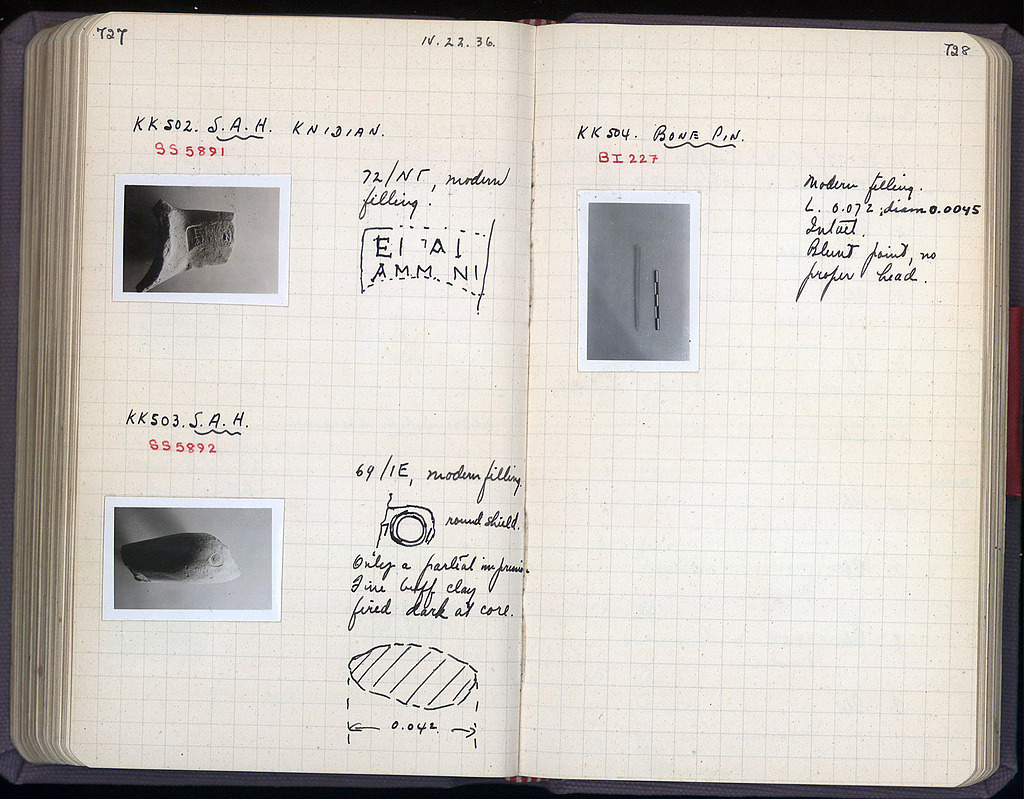 727
IV. 22. 36.
KK 502. S.A.H. KNIDIAN.
SS 5891
72/ΝΓ, modern
filling.
ΕΙ ΑΙ
ΑΜΜ ΝΙ
KK 503. S.A.H.
SS 5892
69/ΙΕ, modern filling.
round shield.
Only a partial
Fine buff clay
fired dark at core.
0.042
728
KK 504. BONE PIN.
BI 227
Modern filling.
L. 0.072; diam 0.0045
Intact.
Blunt point, no
proper head.